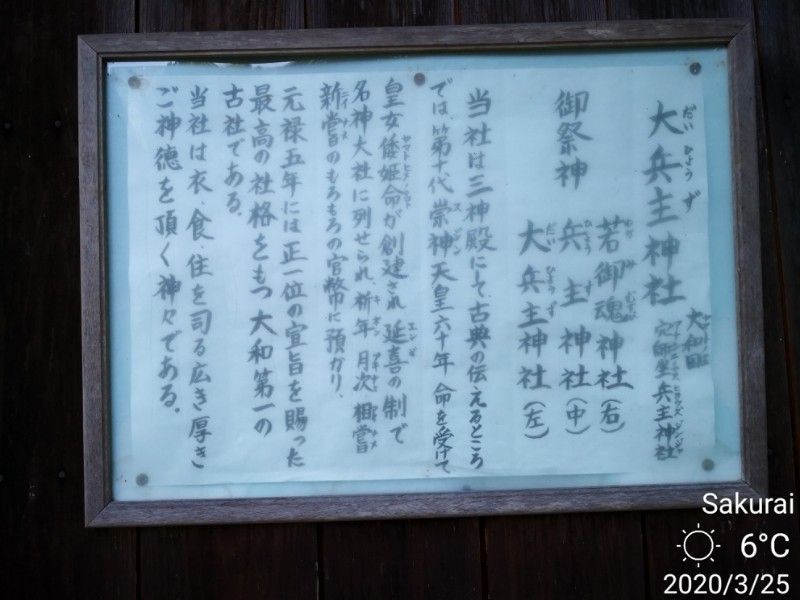 大兵主神社
だいひょうず
大和国
穴師坐兵主神社
御祭神
若御魂神社（右）
兵主神社（中）
ひょうず
大兵主神社（左）
だいひょうず
当社は三神殿にて、古典の伝えるところ
では、第十代崇神天皇六十年命を受けて
スジン
皇女倭姫命が創建され延喜の制で
エンギ
名神大社に列せられ、祈年月次相嘗
新嘗のもろもろの官幣に預かり、
元禄五年には正一位の宣旨を賜った
最高の社格をもつ大和第一の
古社である。
当社は衣、食、住を司る広き厚き
ご神徳を頂く神々である。
Sakurai
6°C
2020/3/25